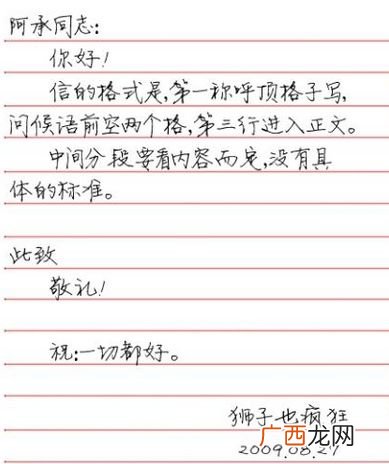 阿承同志:
你好!
信的格式是,第一称呼顶格子写,
问候语前空两个格,第三行进入正文。
中间分段要看内容而定,没有具
体的标准。
此致
敬礼!
祝:一切都好。
狮子也疯狂
广西龙网
2009.08.27